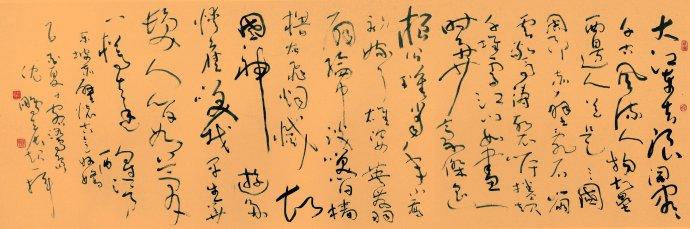 大江東去浪淘盡
千古風流人物故壘
西邊人道是三國
周郎赤壁亂石崩
雲驚濤裂岸捲起
千堆雪江山如畫一
時多少豪傑遙
想公瑾當年小喬
初嫁了雄姿英發羽
扇綸巾談笑間檣
櫓灰飛煙滅故
國神遊多
情應笑我早生華
髮人間如夢
一樽還酹江月
東坡赤壁懷古
沈鵬